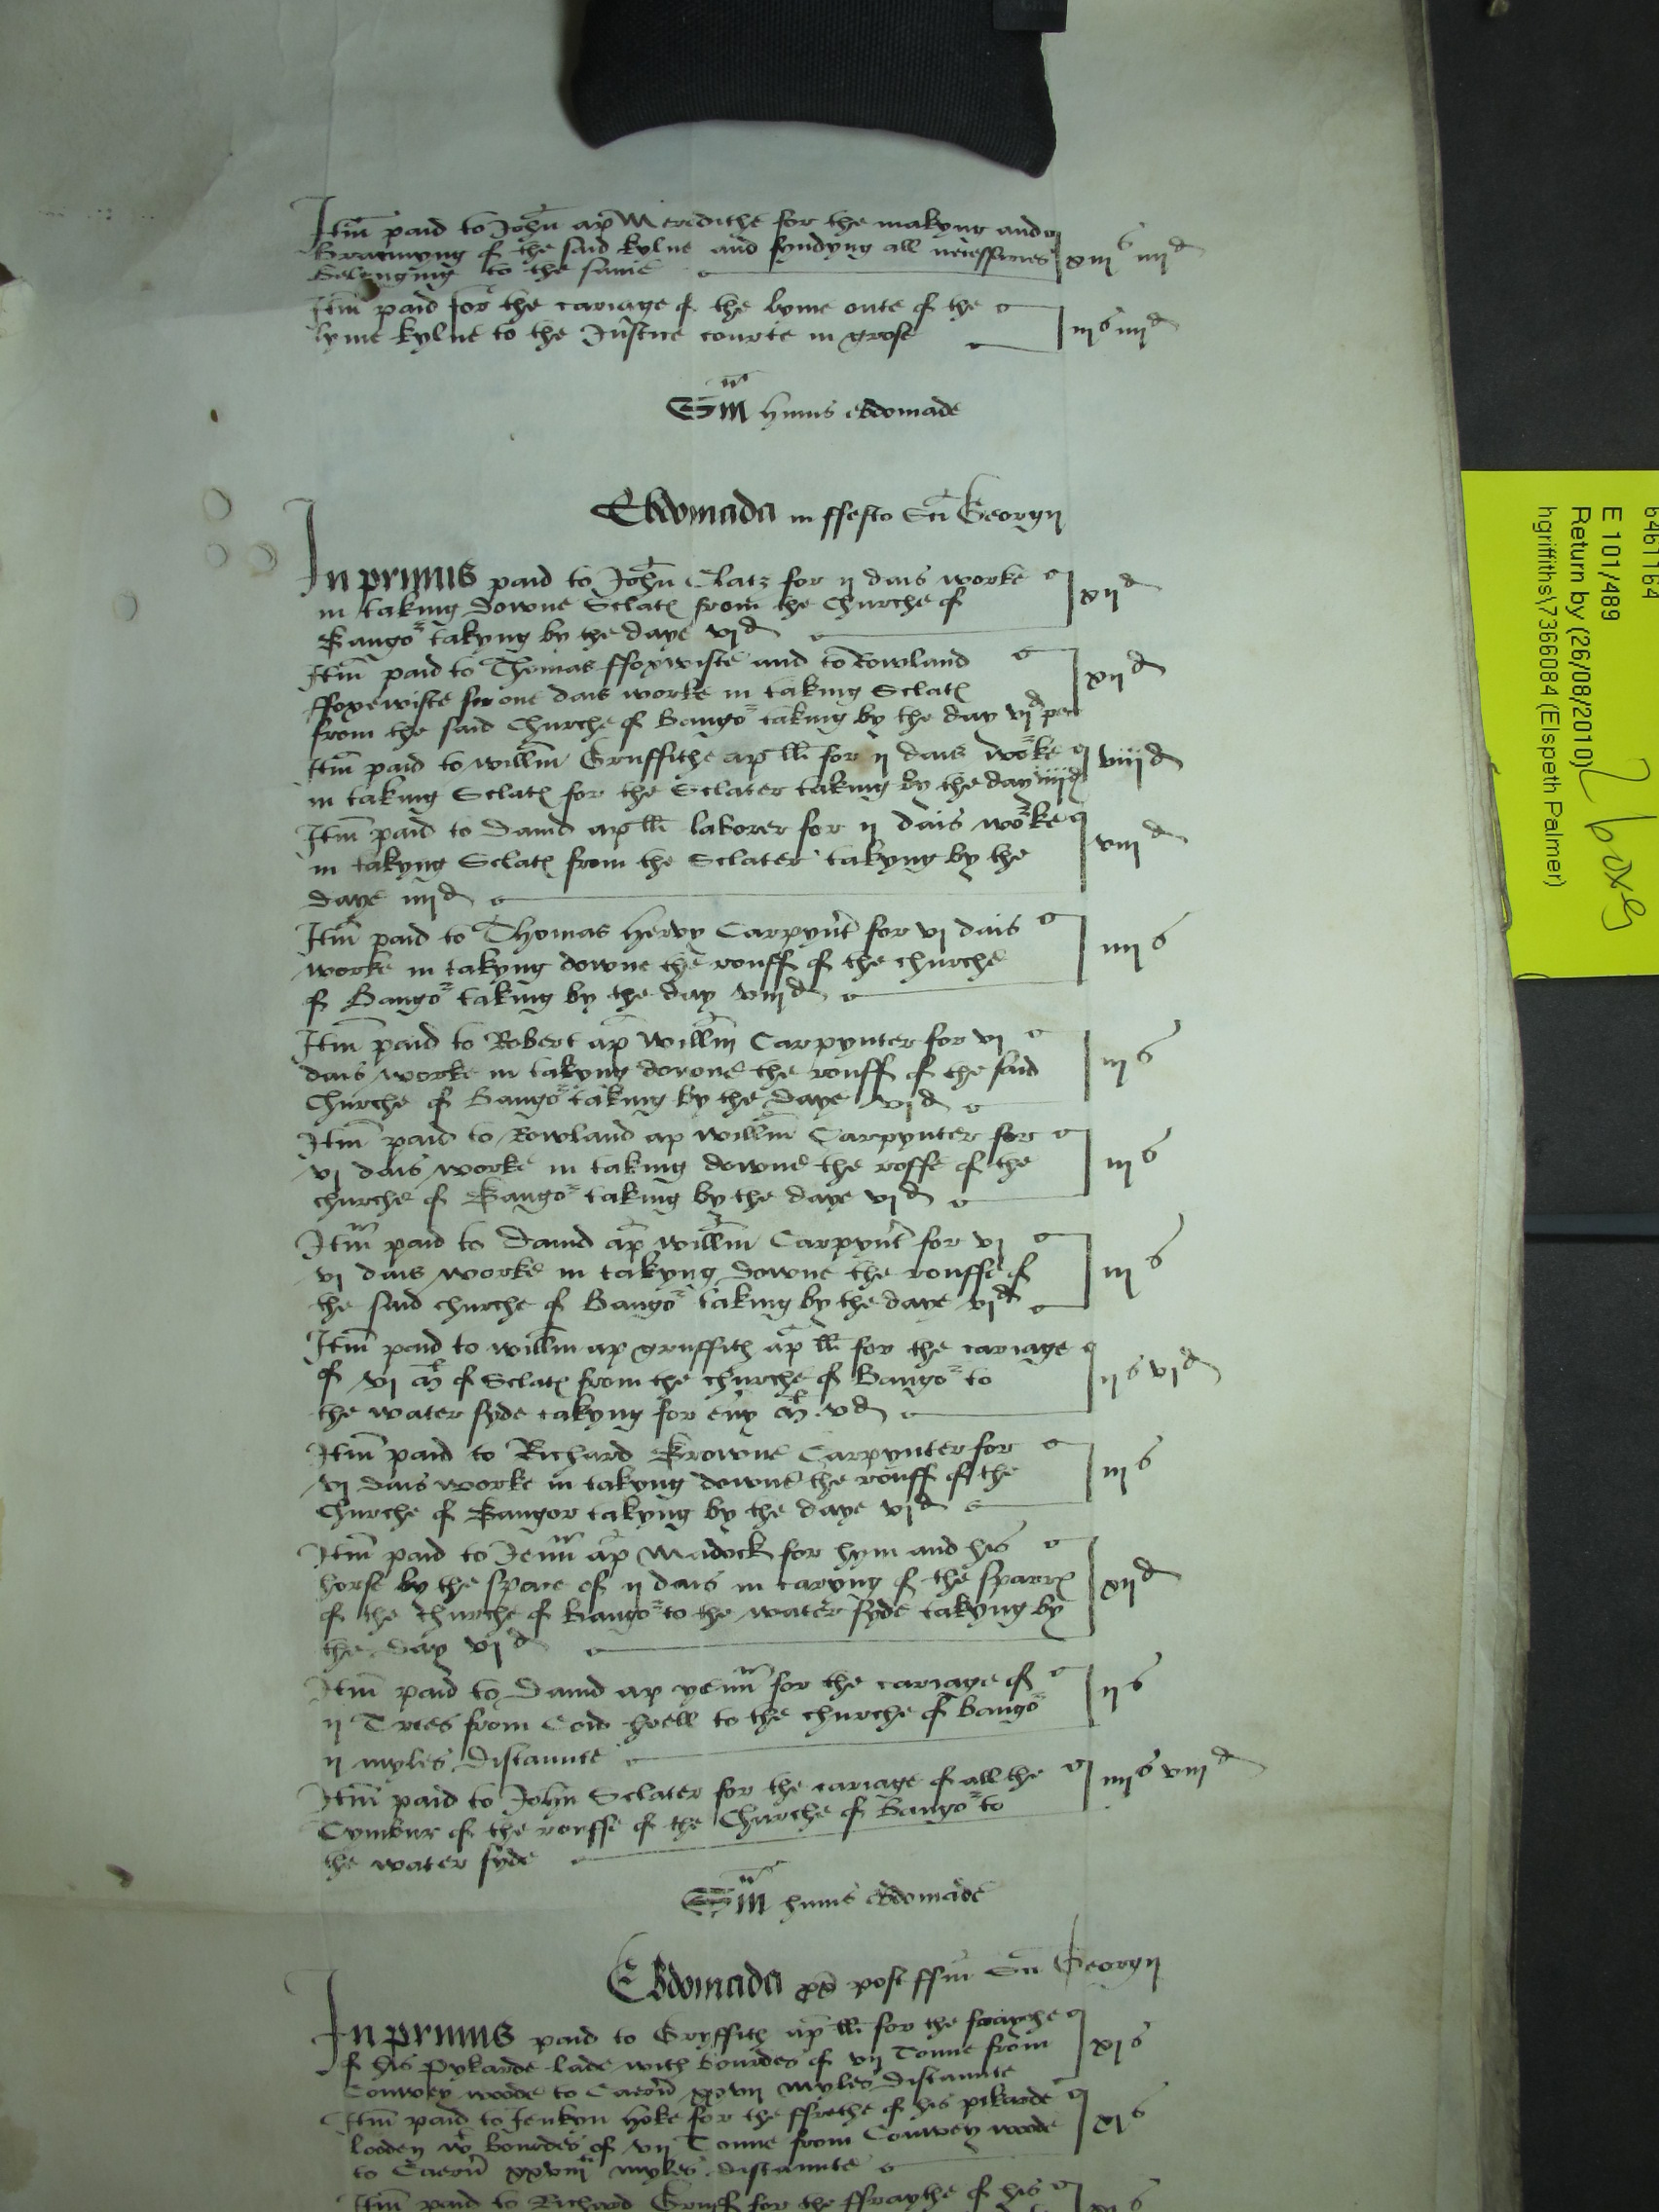 Itm paid to John ap Meredithe for the makyng and
brennyng of the said kylne and fyndyng all necessaries xiijs iiijd
belonging to the same
Itm paid for the cariage of the lyme oute of the
lyme kylne to the Justice courte in grose iijs iiijd
Sm huius ebdomade
Ebdomada in ffesto Sci Georgij
In primis paid to John Clatz for ij dais worke xijd
in taking downe Sclatz from the Churche of
Bangor takyng by the daye vjd
Itm paid to Thomas ffoxwiste and to Rowland
ffoxewiste for one dais worke in taking Sclatz xijd
from the said Churche of Bangor taking by the day vjd pec
Itm paid to Willm Gruffithe ap lli for ij dais worke viijd
in taking Sclatz for the Sclater taking by the day iiijd
Itm paid to Dauid ap lli laborer for ij dais worke
in takyng Sclatz from the Sclater takyng by the viijd
daye iiijd
Itm paid to Thomas hervy Carpynt for vj dais
worke in takyng downe the rouff of the churche iiijs
of Bangor taking by the day viijd
Itm paid to Robert ap Willm Carpynter for vj
dais worke in takyng downe the rouff of the said iijs
Churche of Bangor taking by the daye vjd
Itm paid to Rowland ap Willm Carpynter for
vj dais worke in taking downe the roffe of the iijs
churche of Bangor taking by the daye vjd
Itm paid to Dauid ap Willm Carpynt for vj
vj dais worke in takyng downe the rouffe of iijs
the said churche of Bangor taking by the daye vjd
Itm paid to Willm ap gruffith ap lli for the cariage
of vj ml of Sclatz from the churche of Bangor to ijs vjd
the water syde takyng for euy ml vd
Itm paid to Richard Browne Carpynter for
vj dais worke in takyng downe the rouff of the iijs
Churche of Bangor takyng by the daye vjd
Itm paid to Ieun ap Madock for hym and his
horse by the space of ij dais in caryng of the sparrz xijd
of the churche of Bangor to the water syde takyng by
the day vjd
Itm paid to Dauid ap yeun for the cariage of
ij Trees from Coid hoell to the churche of Bangor ijs
ij myles distaunce
Itm paid to John Sclater for the cariage of all the iiijs viijd
Tymbur of the rouffe of the Churche of Bangor to
the water syde
Sm huius ebdomade
Ebdomada px post ffm Sci Georgij
In primis paid to Gryffith ap lli for the fraythe
of his pykarde lade with bourdes of vij Tonne from xjs
Convey woode to Caern xxvij myles distaunce
Itm paid to Jenkyn hoke for the ffrethe of his pikarde
looden wt bourdes of vij Tonne from Conwey woode xjs
to Caern xxviij myles distaunce
Itm paid to Richard Gruff for the ffraythe of his
6461164
E 101/489
Return by (26/08/2010)
hgriffiths\7366084 (Elspeth Palmer)
2 boxes